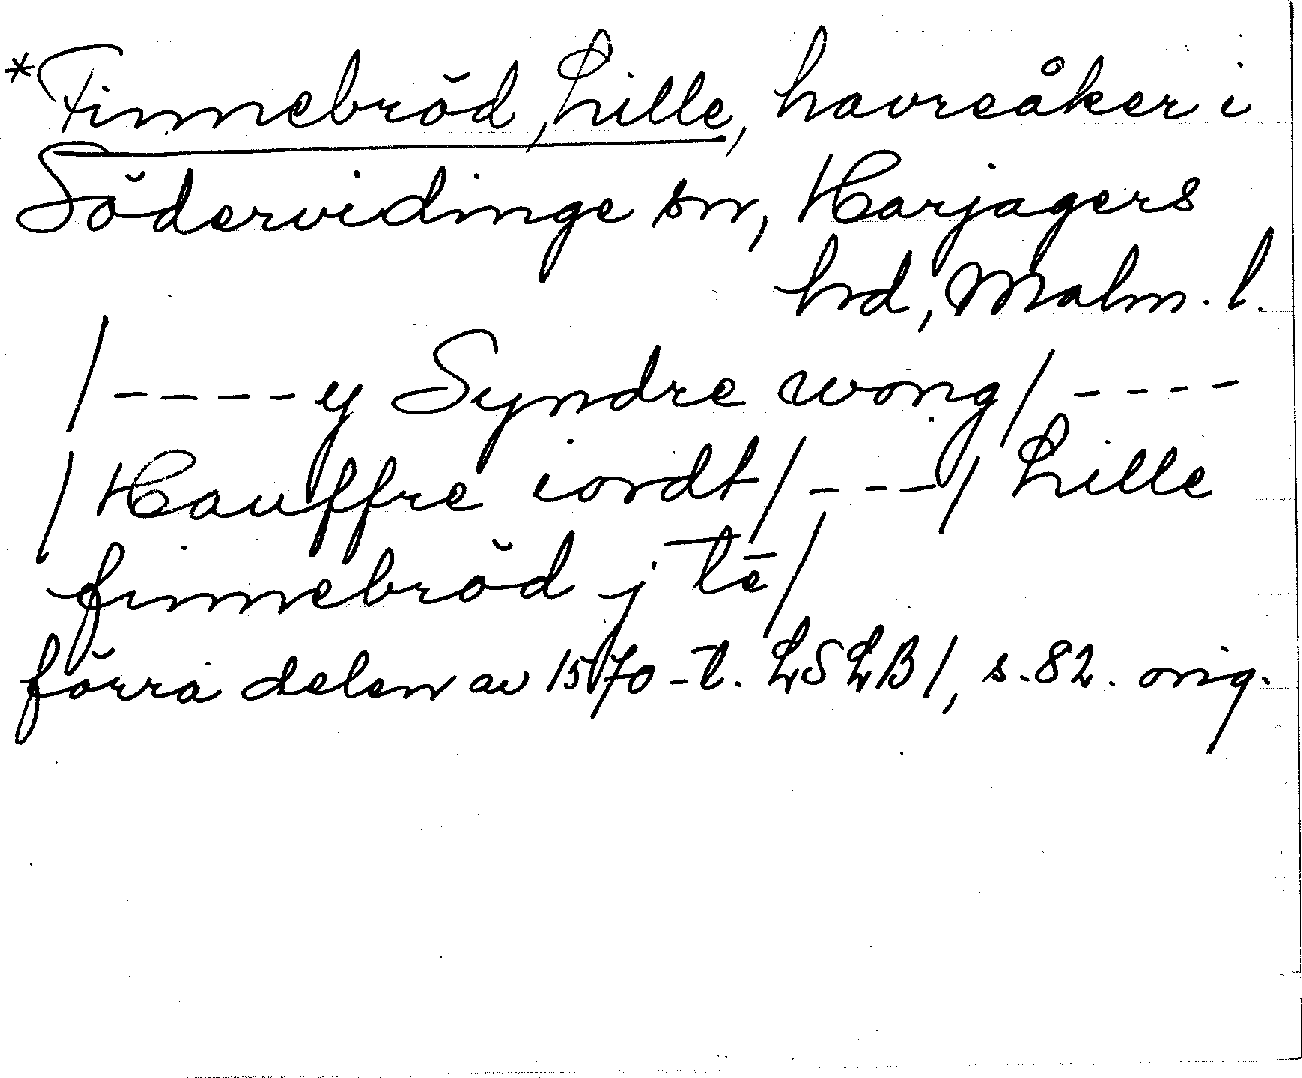 *Finnebröd, Lille, havreåker i
Södervidinge sn, Harjagers
hd, Malm. l.
/-----y Syndre wong/----
/Hauffre iordt/----/ Lille
finnebröd j tē/
förra delen av 1570-t. LSLB1, s.82. orig.